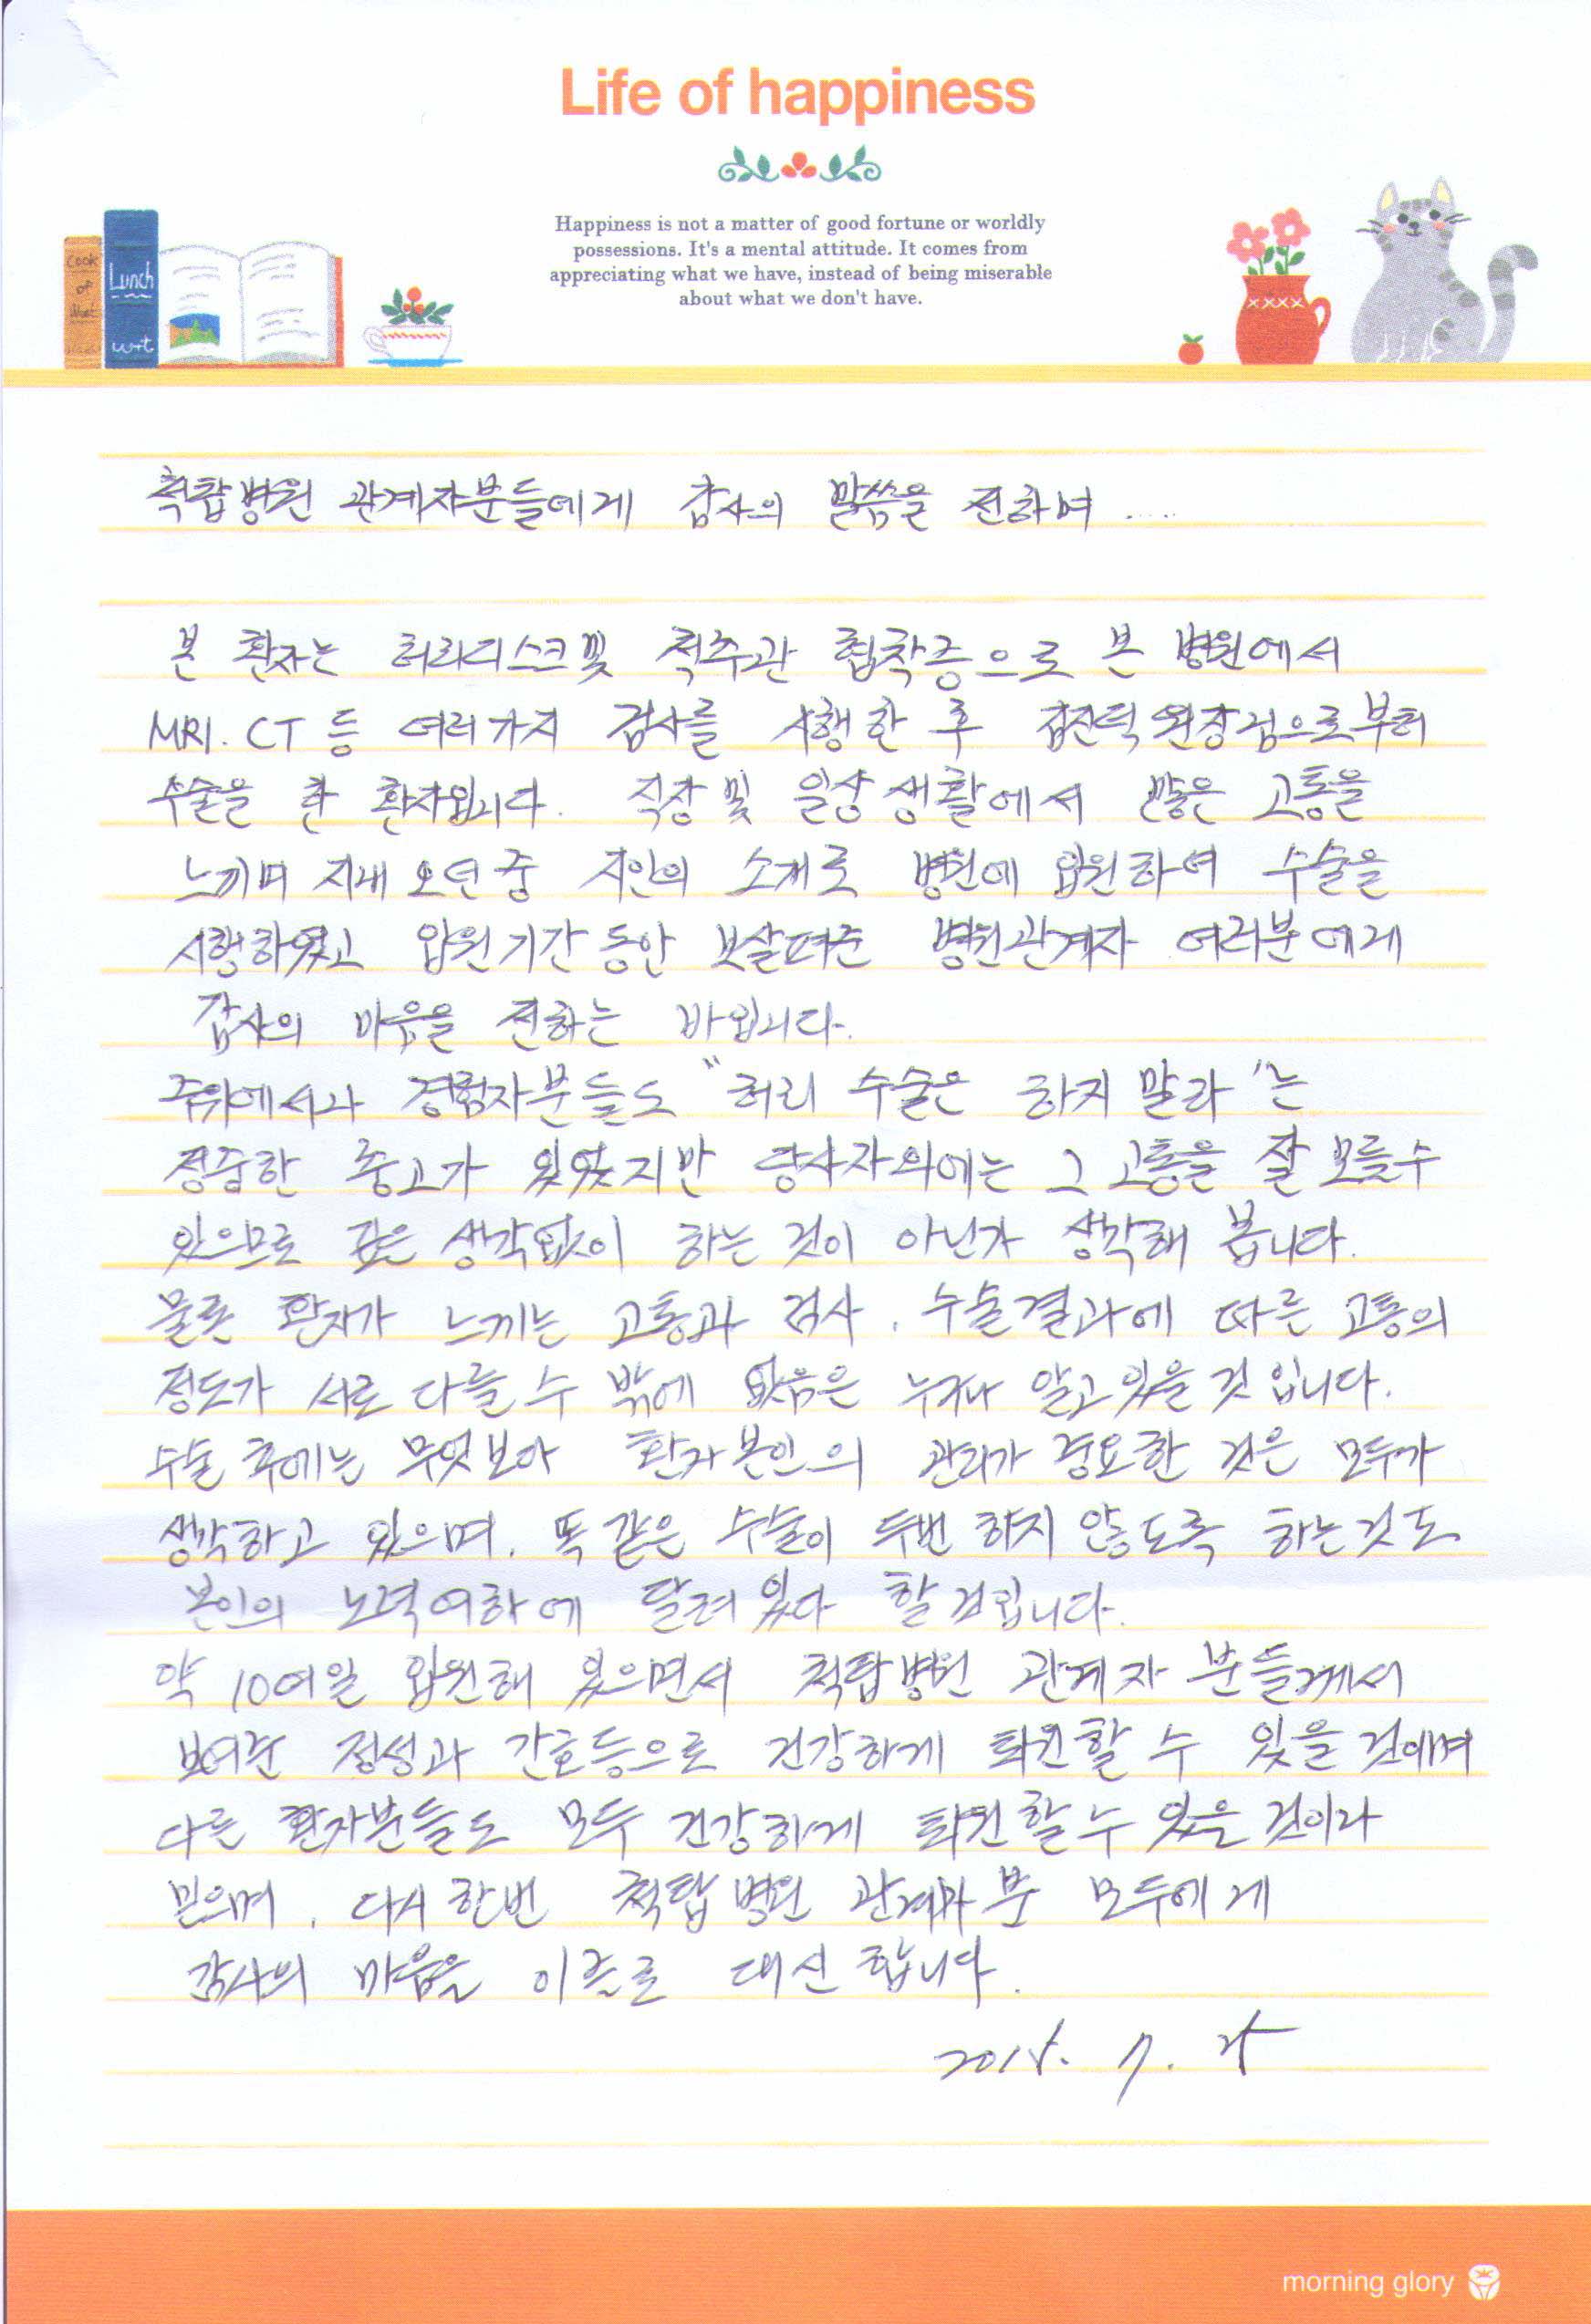 Life of happiness
Happiness is not a matter of good fortune or worldly
possessions. It's a mental attitude. It comes from
appreciating what we have, instead of being miserable
about what we don't have.
Cook
of
Lunch
척탑병원 관계자분들에게 감사의 말씀을 전하며 ....
본 환자는 허리디스크및 척추관 협착증으로 본 병원에서
MRI. CT 등 여러가지 검사를 시행한 후 김진덕 원장님으로부터
수술을 한 환자입니다. 직장 및 일상생활에서 많은 고통을
느끼며 지내오던중 지인의 소개로 병원에 입원하여 수술을
시행하였고 입원기간 동안 보살펴준 병원관계자 여러분에게
감사의 마음을 전하는 바입니다.
주위에서나 경험자분들도 "허리 수술은 하지 말라"는
정중한 충고가 있었지만 당사자외에는 그 고통을 잘 모를수
있으므로 깊은 생각없이 하는 것이 아닌가 생각해 봅니다.
물론 환자가 느끼는 고통과 검사, 수술결과에 따른 고통의
정도가 서로 다를 수 밖에 없음은 누구나 알고있을 것입니다.
수술 후에는 무엇보다 환자본인의 관리가 중요한 것은 모두가
생각하고 있으며, 똑같은 수술이 두번 하지 않도록 하는것도
본인의 노력여하에 달려있다 할 것입니다.
약 10여일 입원해 있으면서 척탑병원 관계자 분들께서
보여준 정성과 간호등으로 건강하게 퇴원할 수 있을 것이며
다른 환자분들도 모두 건강하게 퇴원할 수 있을 것이라
믿으며, 다시한번 척탑병원 관계자분 모두에게
감사의 마음을 이글로 대신합니다.
7.
morning glory